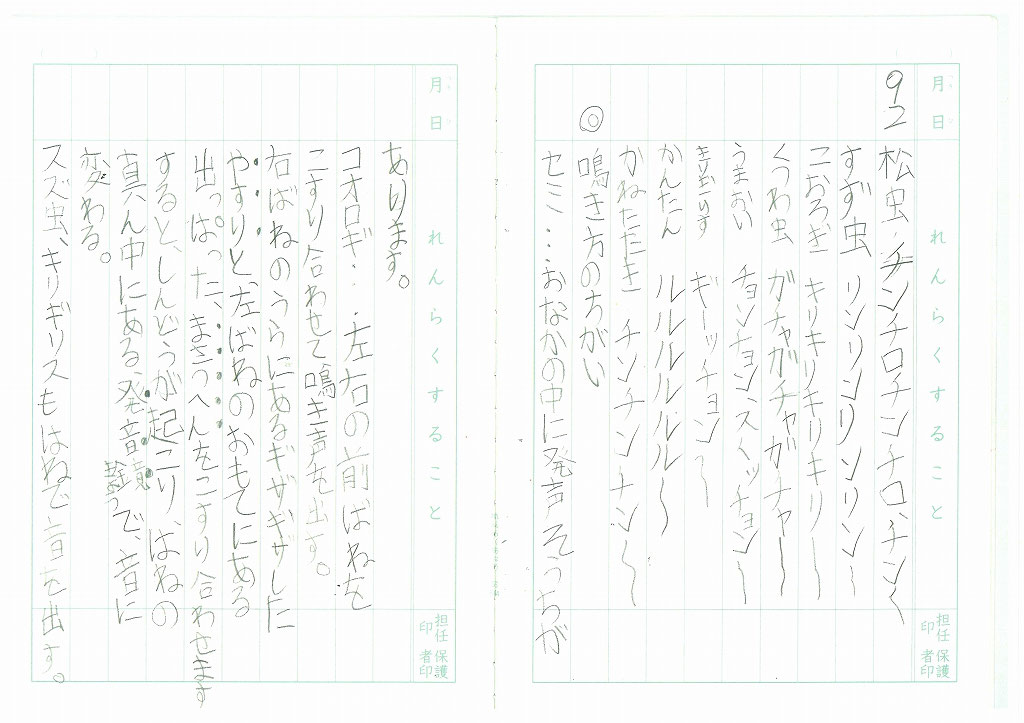 月 日
れんらくすること
担任印
保護者印
92
松虫・チンチロチンチロ、チン〜
すず虫 リンリンリンリンリン〜
こおろぎ キリキリキリキリキリ〜
くつわ虫 ガチャガチャガチャ〜
うまおい チョンチョンスイッチョン〜
きりぎりす ギーッチョン〜
かんたん ルルルルルル〜
かねたたき チンチンチンチン〜
◎ 鳴き方のちがい
セミ・・・おなかの中に発声そうちが
月 日
れんらくすること
担任印
保護者印
あります。
コオロギ・・左右の前ばねを
こすり合わせて鳴き声を出す。
右ばねのうらにあるギザギザした
やすりと、左ばねのおもてにある
出っぱった、まさつへんをこすり合わせます
すると、しんどうが起こり、はねの
真ん中にある、発音鏡で、音に
変わる。
スズ虫、キリギリスもはねで音を出す。